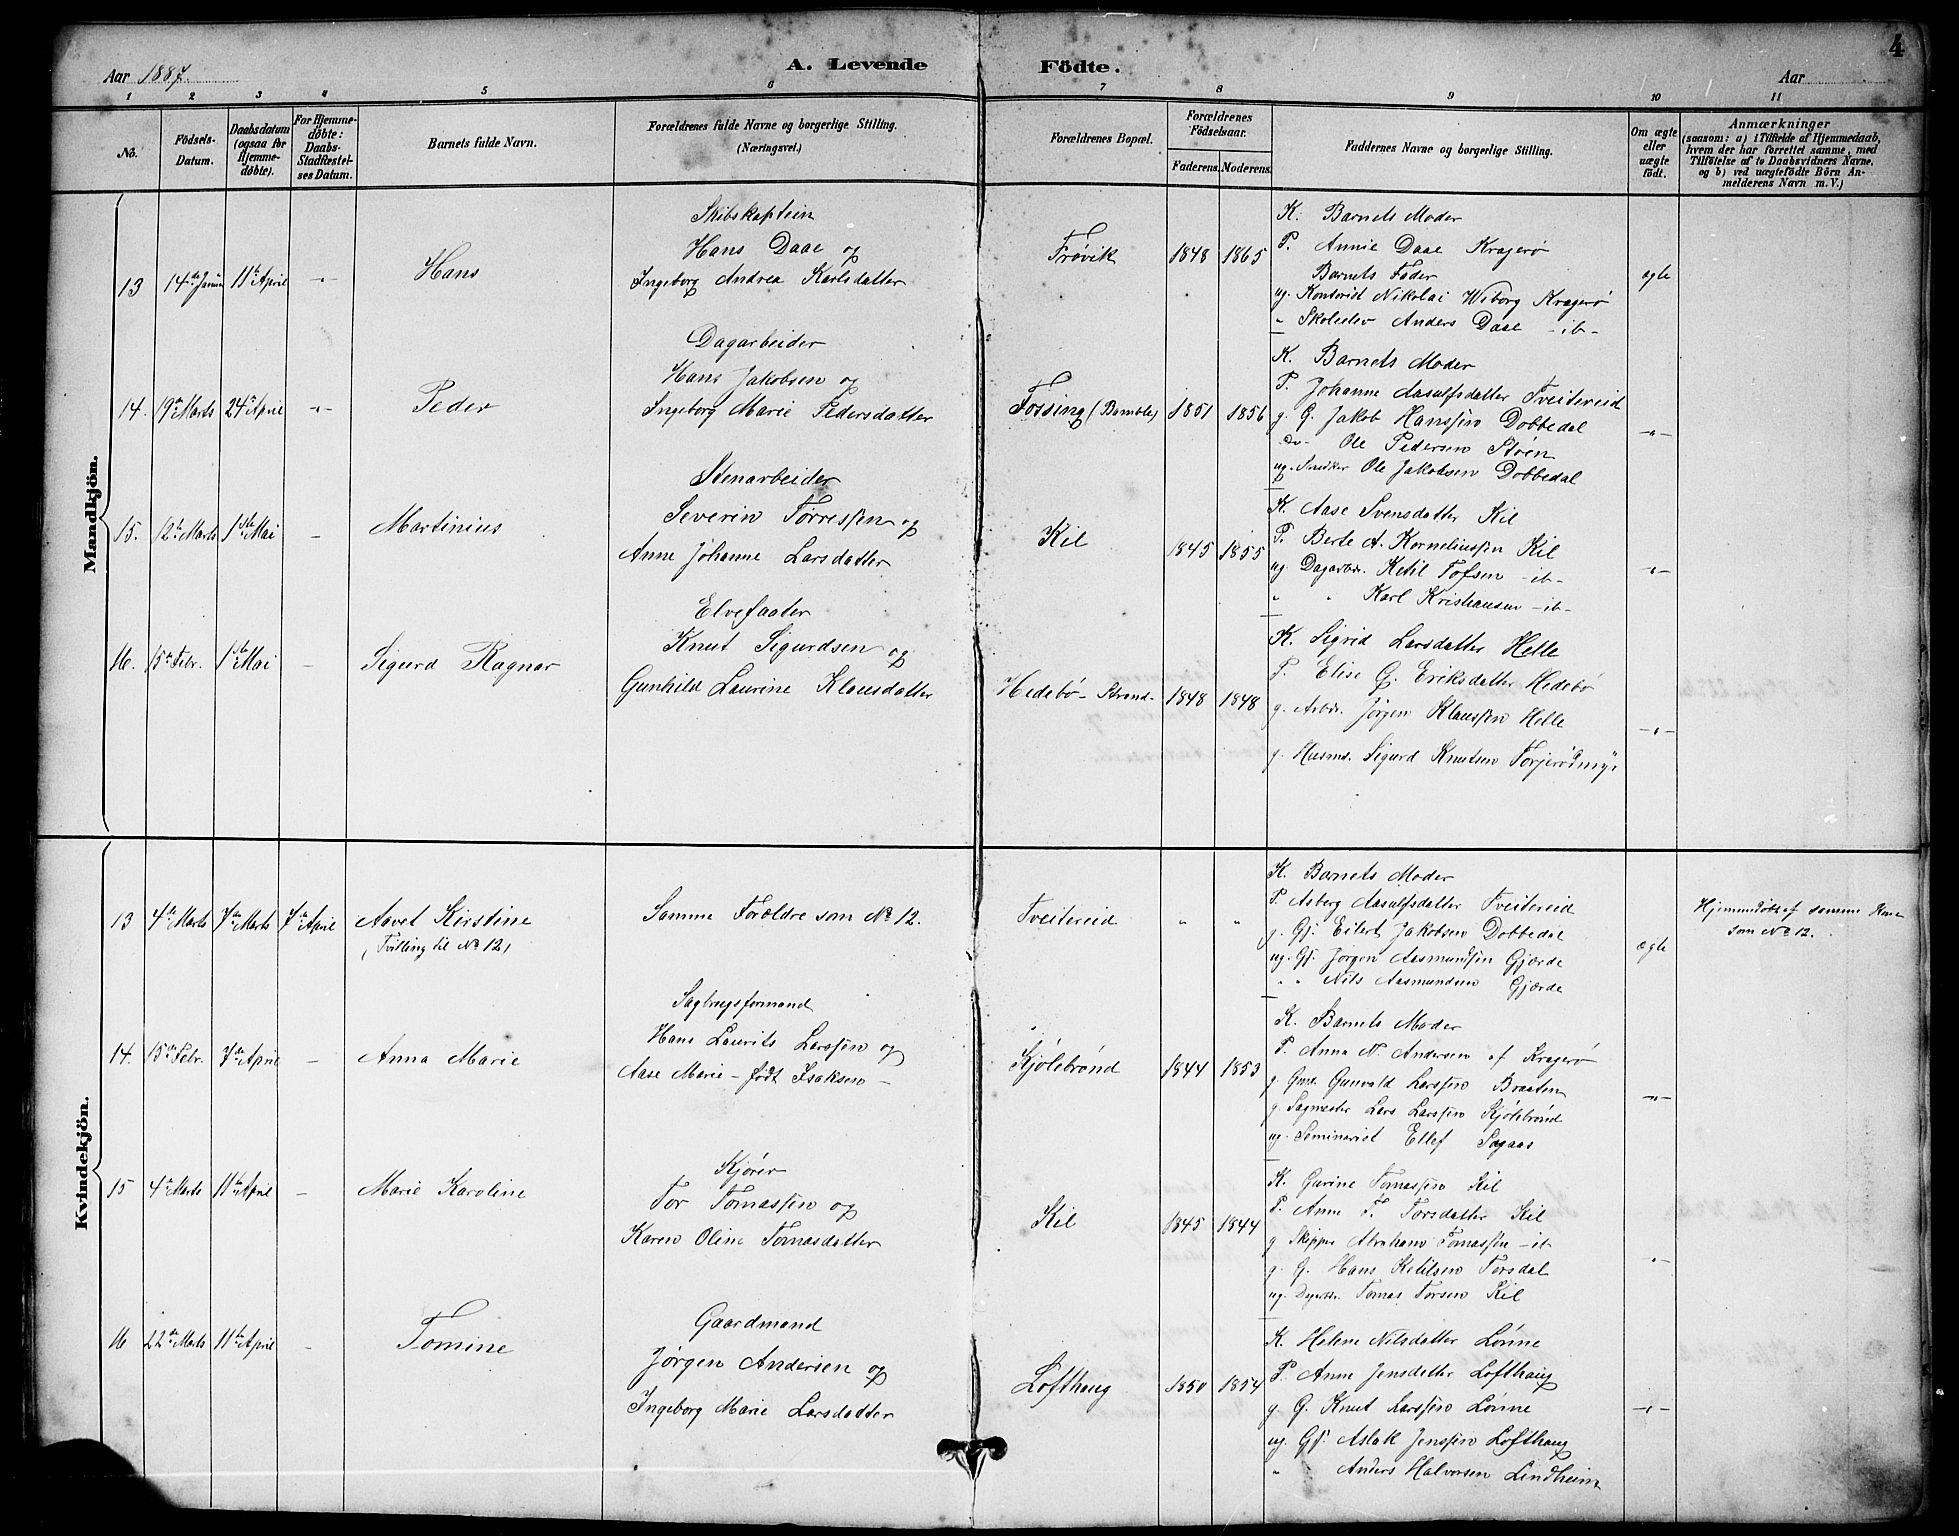 4
Aar 1887.
A. Levende Födte.
Aar
1 2 3 4 5 6 7 8 9 10 11
No.
Födsels-Datum.
Daabsdatum (ogsaa for Hjemme-döbte).
For Hjemme-döbte: Daabs-Stadfæstel-ses Datum.
Barnets fulde Navn.
Forældrenes fulde Navne og borgerlige Stilling.
(Næringsvei.)
Forældrenes Bopæl.
Forældrenes Födselsaar.
Faderens. Moderens.
Faddernes Navne og borgerlige Stilling.
Om ægte eller uægte födt.
Anmærkninger
(saasom: a) i Tilfælde af Hjemmedaab,
hvem der har forrettet samme, med
Tilföielse af to Daabsvidners Navne,
og b) ved uægtefödte Börn An-
melderens Navn m. V.)
Mandkjön.
13 14de Januar 11te April -"-
Hans
Skibskaptein
Hans Daae og
Ingeborg Andrea Karlsdatter
Frøvik 1848 1865
K. Barnets Moder
P. Annie Daae Kragerø
Barnets Fader
ug. Kontorist Nikolai Wiborg Kragerø
" Skoleelev Anders Daae -ib-
ægte
14. 19de Marts 24de April -"-
Peder
Dagarbeider
Hans Jakobsen og
Ingeborg Marie Pedersdatter
Fossing (Bamble) 1851 1856
K. Barnets Moder
P. Johanne Aasulfsdatter Tveitereid
g. G. Jakob Hanssen Dobbedal
do- Ole Pedersen Støen
ug. Snedker Ole Jakobsen Dobbedal
-"-
15. 12te Marts 1ste Mai -
Martinius
Stenarbeider
Severin Torressen og
Anne Johanne Larsdatter
Kil 1845 1855
K. Aase Svensdatter Kil
P. Berte A. Korneliussen Kil
ug. Dagarbr. Ketil Tofsen -ib-
" " Karl Kristiansen -ib-
-"-
16. 15de Febr. 1ste Mai -
Sigurd Ragnar
Elvefløter
Knut Sigurdsen og
Gunhild Laurine Klausdatter
Hedebø- Strand- 1848 1848
K. Sigrid Larsdatter Helle
P. Elise G. Eriksdatter Hedebø
g. Arbdr. Jørgen Klaussen Helle
g. Husmd. Sigurd Knutsen
-"-
Kvindekjön.
13 4de Marts 7de Marts 7de April
Aavet Kirstine
(Tvilling til No 12)
Samme Forældre som No 12.
Tveitereid " "
K. Barnets Moder
P. Asborg Aasulfsdatter Tveitereid
g. Gj. Eilert Jakobsen Dobbedal
ug. Gj. Jørgen Aasmundsen Gjærde
" " Nils Aasmundsen Gjærde
ægte
Hjemmedøbt af samme Kone
som No 12.
14. 15de Febr. 7de April -
Anna Marie
Sagbrugsformand
Hans Laurits Larssen og
Aase Marie - født Isaksen -
Kjølebrønd 1844 1853
K. Barnets Moder
P. Anna N. Andersen af Kragerø
g. Gmd. Gunvald Larssen Braaten
g. Sagmester Lars Larssen Kjølebrønd
ug. Seminarist Ellef Sagaas
-"-
15 4de Marts 11te April -
Marie Karoline
Kjører
Tor Tomassen og
Karen Oline Tomasdatter
Kil 1845 1844
K. Gurine Tomassen Kil
P. Anne T. Torsdatter Kil
g Skipper Abraham Tomassen -ib
g. G. Hans Ketilsen Torsdal
ug. Tomas Torsen Kil
-"-
16 22de Marts 11te April -
Tomine
Gaardmand
Jørgen Andersen og
Ingeborg Marie Larsdatter
Lofthaug 1850 1854
K. Helene Nilsdatter Lønne
P. Anne Jensdatter Lofthaug
g. G. Knut Larssen Lønne
ug. Gj. Aslak Jenssen Lofthaug
" Anders Halvorsen Lindheim
-"-